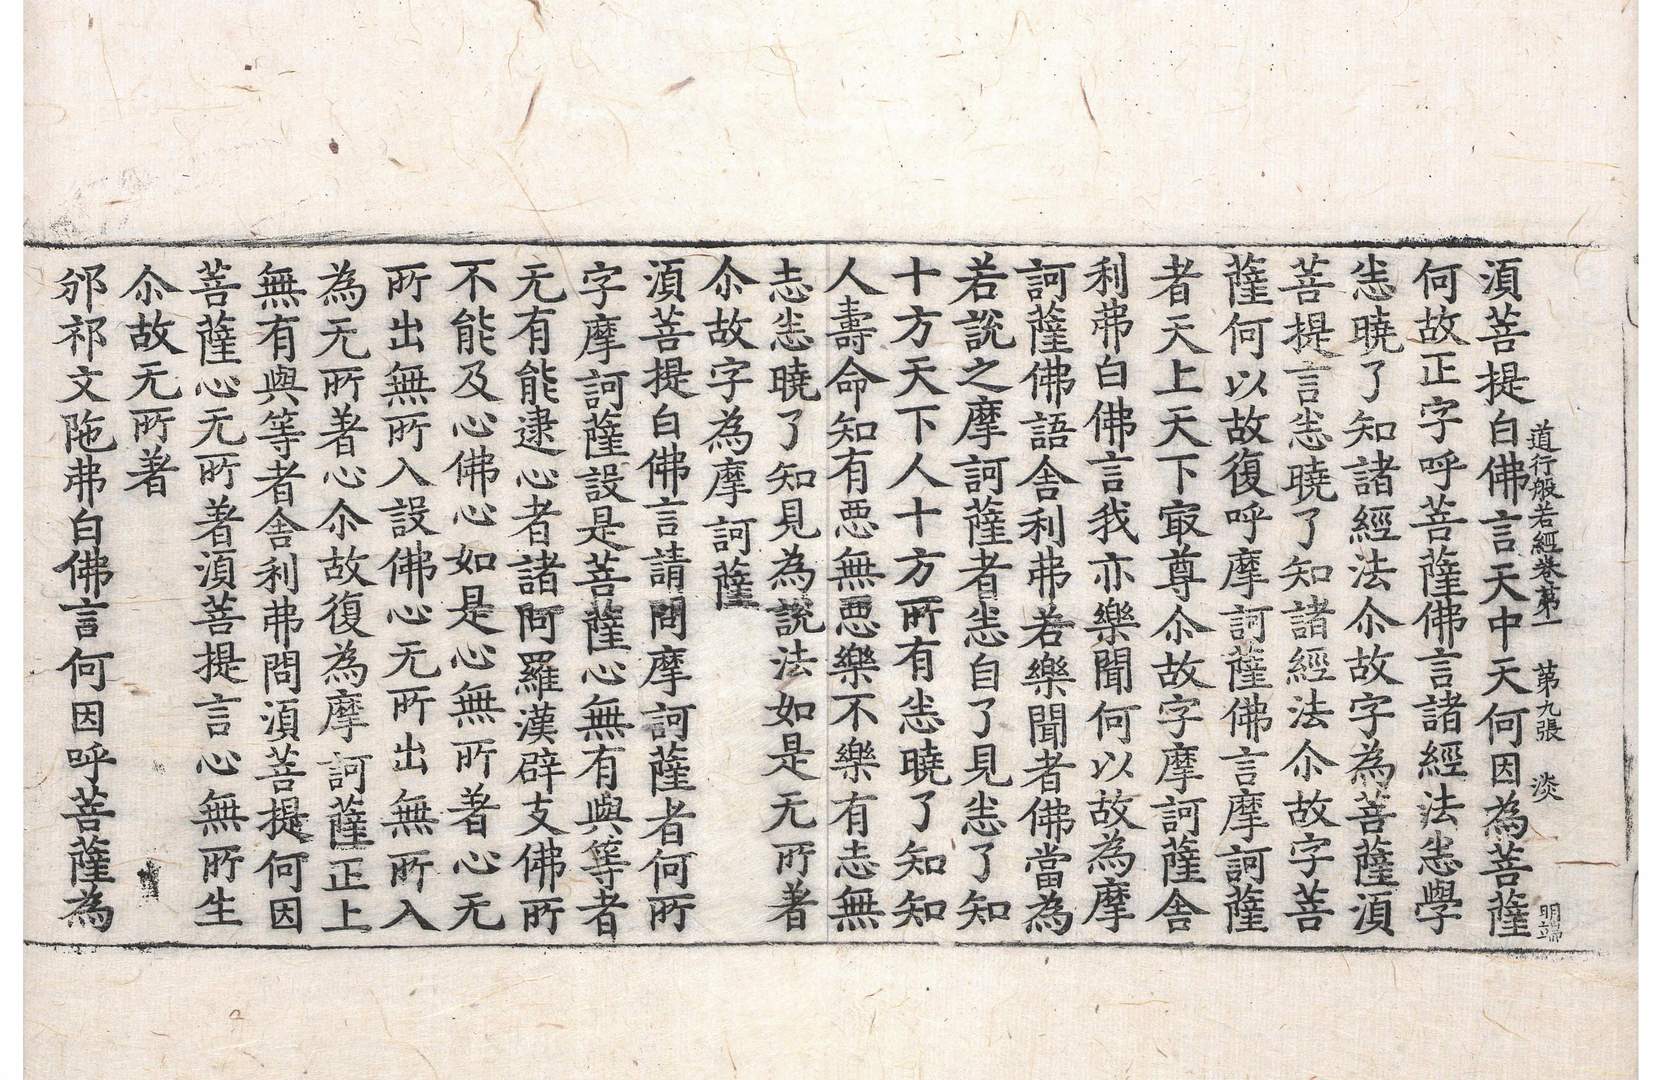 道行般若經卷第一　第九張　淡　明端
湏菩提白佛言天中天何因為菩薩
何故正字呼菩薩佛言諸經法悉學
悉曉了知諸經法尒故字為菩薩湏
菩提言悉曉了知諸經法尒故字菩
薩何以故復呼摩訶薩佛言摩訶薩
者天上天下㝡尊尒故字摩訶薩舎
利弗白佛言我亦樂聞何以故為摩
訶薩佛語舎利弗若樂聞者佛當為
若說之摩訶薩者悉自了見悉了知
十方天下人十方所有悉曉了知知
人壽命知有惡無惡樂不樂有志無
志悉曉了知見為說法如是无所著
尒故字為摩訶薩
湏菩提白佛言請問摩訶薩者何所
字摩訶薩設是菩薩心無有與等者
无有能逮心者諸阿羅漢辟支佛所
不能及心佛心如是心無所著心无
所出無所入設佛心无所出無所入
為无所著心尒故復為摩訶薩正上
無有與等者舎利弗問湏菩提何因
菩薩心无所著湏菩提言心無所生
尒故无所著
邠祁文陁弗白佛言何因呼菩薩為